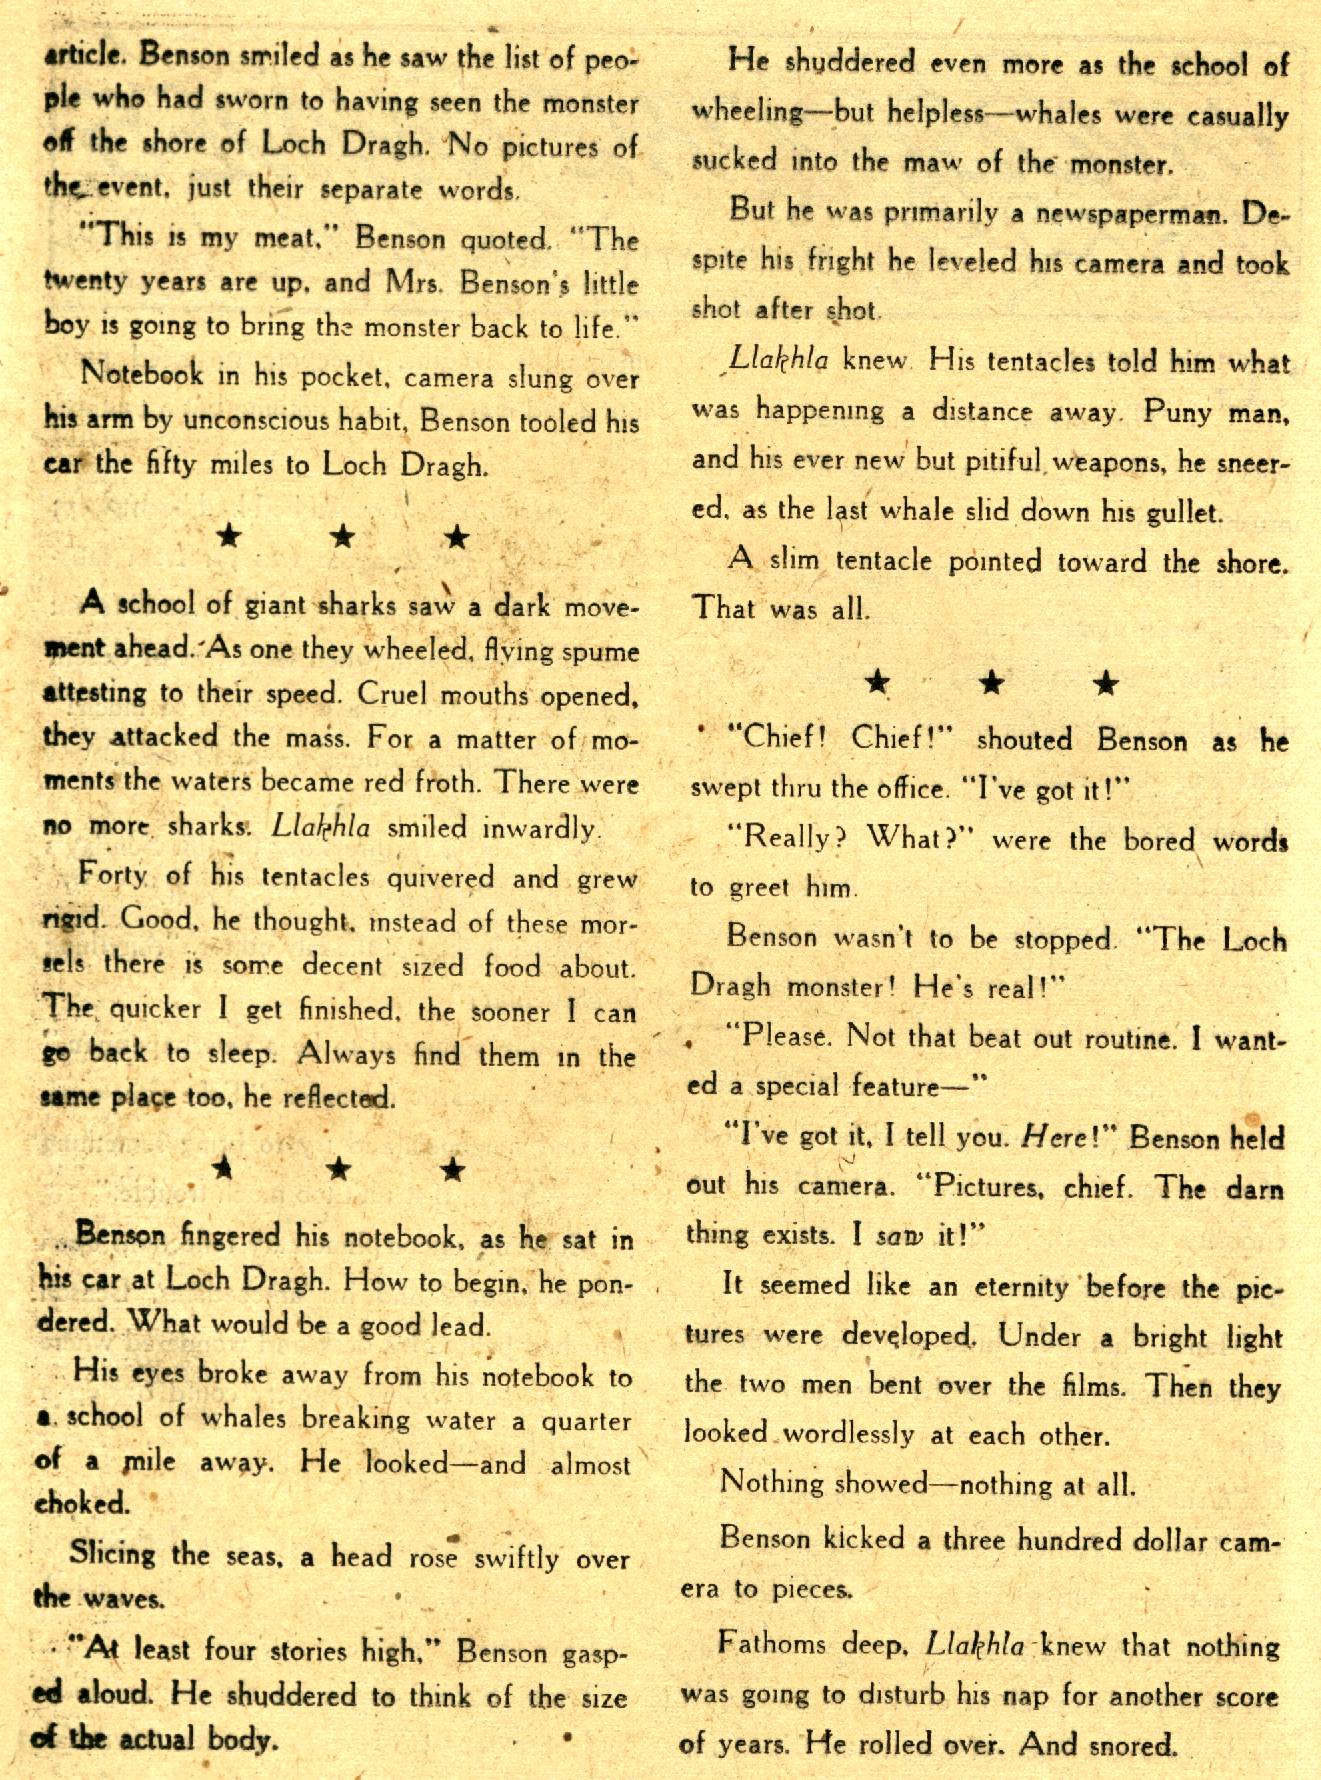 article. Benson smiled as he saw the list of peo-
ple who had sworn to having seen the monster
off the shore of Loch Dragh. No pictures of
the event, just their separate words.
"This is my meat," Benson quoted. "The
twenty years are up, and Mrs. Benson's little
boy is going to bring the monster back to life."
Notebook in his pocket, camera slung over
his arm by unconscious habit, Benson tooled his
car the fifty miles to Loch Dragh.
★ ★ ★
A school of giant sharks saw a dark move-
ment ahead. As one they wheeled, flying spume
attesting to their speed. Cruel mouths opened,
they attacked the mass. For a matter of mo-
ments the waters became red froth. There were
no more sharks. Llakhla smiled inwardly.
Forty of his tentacles quivered and grew
rigid. Good, he thought, instead of these mor-
sels there is some decent sized food about.
The quicker I get finished, the sooner I can
go back to sleep. Always find them in the
same place too, he reflected.
★ ★ ★
Benson fingered his notebook, as he sat in
his car at Loch Dragh. How to begin, he pon-
dered. What would be a good lead.
His eyes broke away from his notebook to
a school of whales breaking water a quarter
of a mile away. He looked—and almost
choked.
Slicing the seas, a head rose swiftly over
the waves.
"At least four stories high," Benson gasp-
ed aloud. He shuddered to think of the size
of the actual body.
He shuddered even more as the school of
wheeling—but helpless—whales were casually
sucked into the maw of the monster.
But he was primarily a newspaperman. De-
spite his fright he leveled his camera and took
shot after shot.
Llakhla knew. His tentacles told him what
was happening a distance away. Puny man,
and his ever new but pitiful weapons, he sneer-
ed, as the last whale slid down his gullet.
A slim tentacle pointed toward the shore.
That was all.
★ ★ ★
"Chief! Chief!" shouted Benson as he
swept thru the office. "I've got it!"
"Really? What?" were the bored words
to greet him.
Benson wasn't to be stopped. "The Loch
Dragh monster! He's real!"
"Please. Not that beat out routine. I want-
ed a special feature—"
"I've got it, I tell you. Here!" Benson held
out his camera. "Pictures, chief. The darn
thing exists. I saw it!"
It seemed like an eternity before the pic-
tures were developed. Under a bright light
the two men bent over the films. Then they
looked wordlessly at each other.
Nothing showed—nothing at all.
Benson kicked a three hundred dollar cam-
era to pieces.
Fathoms deep, Llakhla knew that nothing
was going to disturb his nap for another score
of years. He rolled over. And snored.